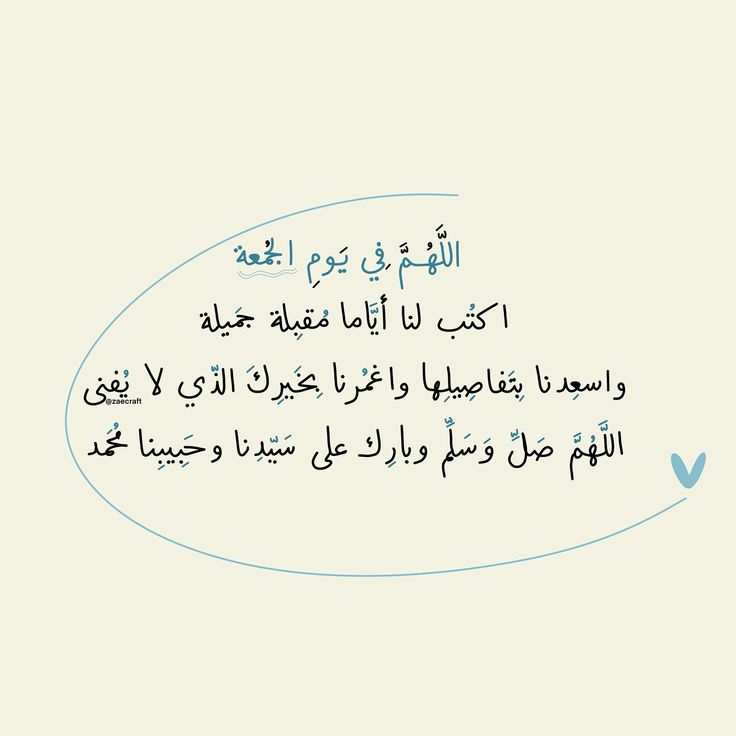 اللَّهُمَّ فِي يَومِ الجُمعة
اكتُب لنا أيَّاما مُقبِلة جَميلة
واسعِدنا بِتَفاصِيلِها واغمُرنا بِخَيرِكَ الذّي لا يُفنى
@zaecraft
اللَّهُمَّ صَلِّ وَسَلِّم وبارِك على سَيّدِنا وحَبِيبِنا مُحَمد